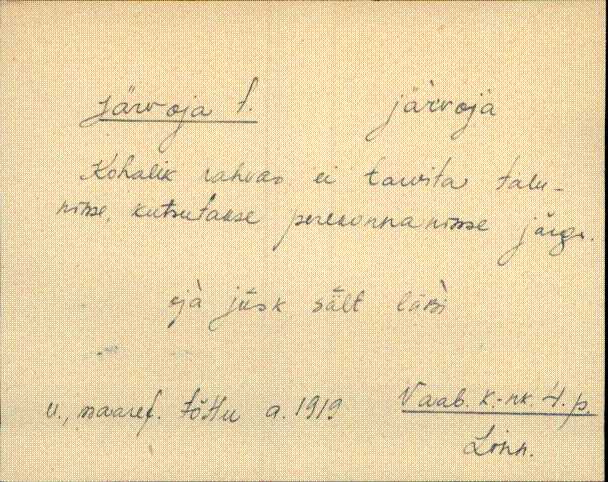 Järvoja t. järvojà
Kohalik rahvas ei tarvita talu-
nime, kutsutakse perekonnanime järge.
ojà jüsk sält läbi
u., maaref. tõttu a. 1919 Vaab. k.-nk 4. p.
Linn.